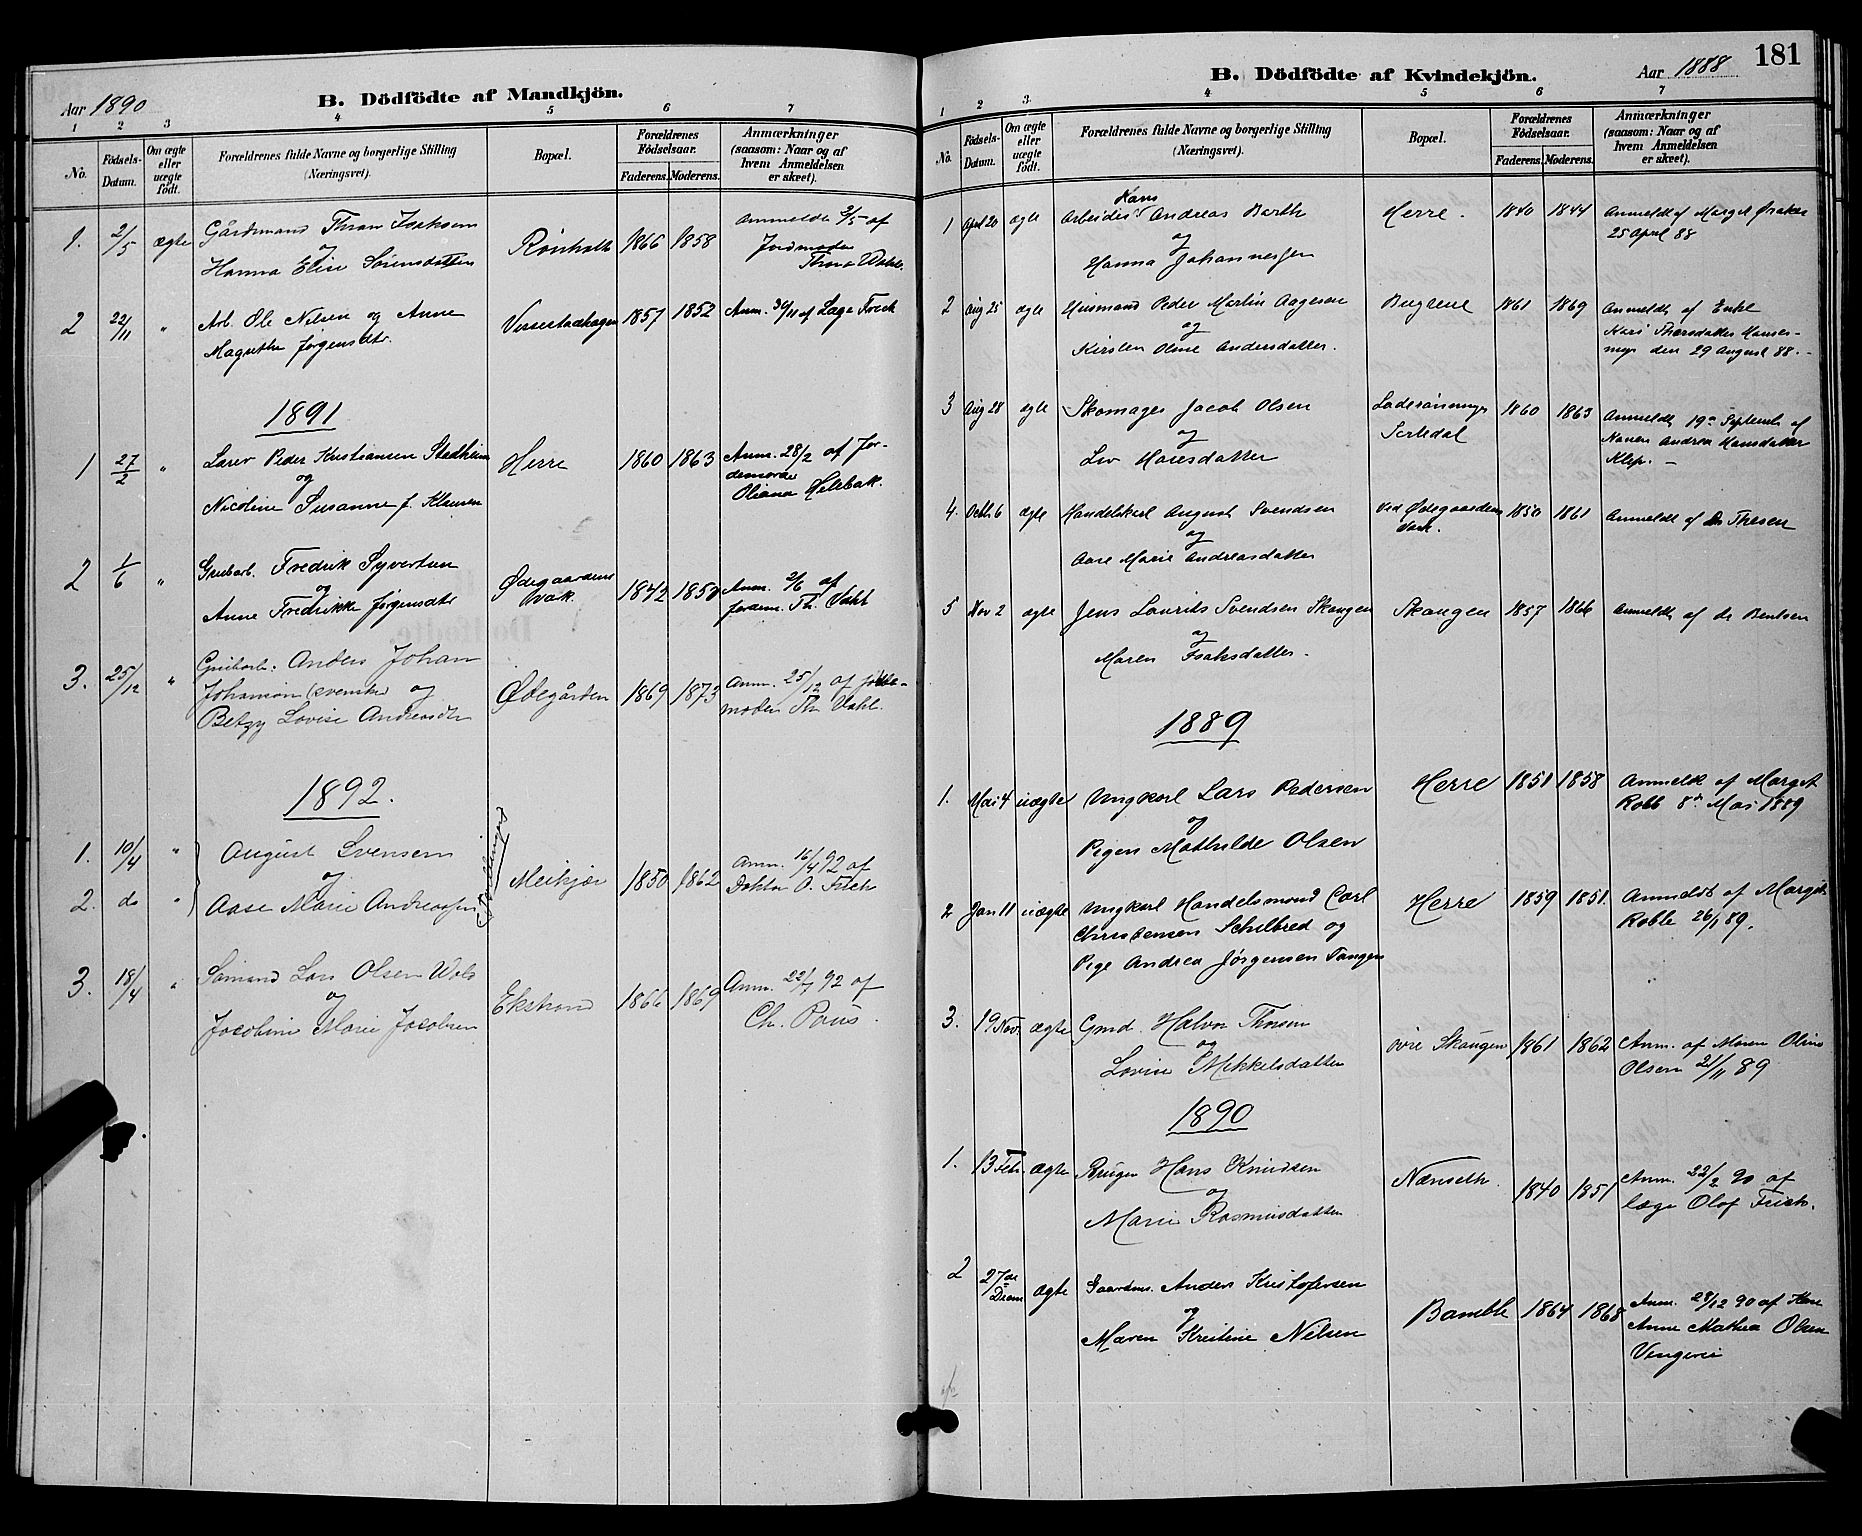 Aar 1890
B. Dödfödte af Mandkjön.
1 2 3 4 5 6 7
No.
Födsels-
Datum.
Om ægte
eller
uægte
födt.
Forældrenes fulde Navne og borgerlige Stilling
(Næringsvei).
Bopæl.
Forældrenes
Födselsaar.
Faderens. Moderens.
Anmærkninger
(saasom: Naar og af
hvem Anmeldelsen
er skeet).
1. 2/5 ægte Gårdmand Thron Isaksen
og
Hanna Elise Sørensdatter
Rönholt 1866 1858
Anmeldt 3/5 af
Jordmoder
2 22/11 " Arb. Ole Nilsen og Anne
Magrethe Jørgensdtr.
1857 1852 Anm. 30/11 af Læge Frich
1891
1 27/2 " Peder Kristiansen Stedheim
og
Nicoline Susanne f. Klausen
Herre 1860 1863 Anm. 28/2 af Jor-
demoder
Oliana
2 1/6 " Grubarb. Fredrik Syvertsen
og
Anne Fredrikke Jørgensdtr
Ødegaardens
Værk. 1842 1850 Anm. 2/6 af
Jordm. Th. Dahl
3. 25/12 " Grubarb. Anders Johan
Johanson (svenske) og
Betzy Lovise Andreasdtr
Ødegården 1869 1873 Anm. 25/12 af Jorde-
moder Th. Dahl.
1892.
1. 10/4 " August Svensen
og
2. do " Aase Marie Andreassen
Tvillinger
Meikjær 1850 1862 Anm. 16/4 92 af
Doktor O. Frich
3. 18/4 " Sömand Lars Olsen
og
Jacobine Marie Jacobsen
Ekstrand 1866 1869 Anm. 22/7 92 af
Ch. Paus.
181
B. Dödfödte af Kvindekjön.
Aar 1888
1 2 3. 4 5 6 7
No.
Födsels-
Datum.
Om ægte
eller
uægte
födt.
Forældrenes fulde Navne og borgerlige Stilling
(Næringsvei).
Bopæl.
Forældrenes
Födselsaar.
Faderens. Moderens.
Anmærkninger
(saasom: Naar og af
hvem Anmeldelsen
er skeet).
Hans
1 April 20 ægte Arbeider Andreas Barth
og
Hanna Johannesen
Herre. 1840 1844 Anmeldt af Marget
25 April 88
2 Aug 25 ægte Husmand Peder Martin Aagesen
og
Kirsten Oline Andersdatter.
1861 1869 Anmeldt af Enke
Kari
den 29 August 88.
3 Aug 28 ægte Skomager Jacob Olsen
og
Liv Hansdatter
1860 1863 Anmeldt 19de September af
Konen Andrea Hansdatter
Klep.
4. Octb 6 ægte Handelskarl August Svendsen
og
Aase Marie Andreasdatter
Ved Ødegaardens
Værk. 1850 1861 Anmeldt af Dr Thesen
5 Nov 2 ægte Jens Laurits Svendsen Skaugen
og
Maren Isaksdatter.
Skaugen 1857 1866 Anmeldt af dr Bentsen
1889
1. Mai 4 uægte Ungkarl Lars Pedersen
og
Pigen Mathilde Olsen
Herre 1851 1858 Anmeldt af Marget
Robb 8de Mai 1889
2 Jan 11 uægte Ungkarl Handelsmand Carl
Christensen Schilbred og
Pige Andrea Jörgensen Tangen
Herre 1859 1851. Anmeldt af Margit
Roble 26/1 89.
3. 19 Nov. ægte Gmd. Halvor Thorsen
og
Lovise Mikkelsdatter
övre Skaugen 1861 1862 Anm. af Maren Oline
Olsen 21/11 89
1890
1. 13 Febr. ægte Bruger Hans Knudsen
og
Marie Rasmusdatter
Nænseth. 1840 1851 Anm. 22/2 90 af
læge Olof Frich.
2 27de Decem ægte Gaardm. Anders Kristofersen
og
Maren Kristine Nilsen
Bamble 1864 1868 Anm. 28/12 90 af
Anne Mathea Olsen